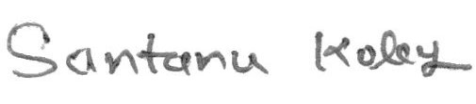 Santanu Koley